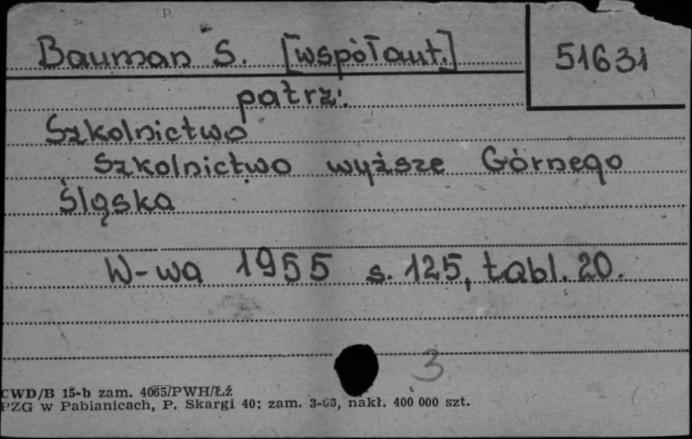 Bauman S. [współaut.] 51631
patrz:
Szkolnictwo
Szkolnictwo wyższe Górnego
Śląska
W-wa 1955 s. 125, tabl. 20.
3
CWD/B 15-b zam. 4065/PWH/Łź
PZG w Pabianicach, P. Skargi 40; zam. nakł. 400 000 szt.